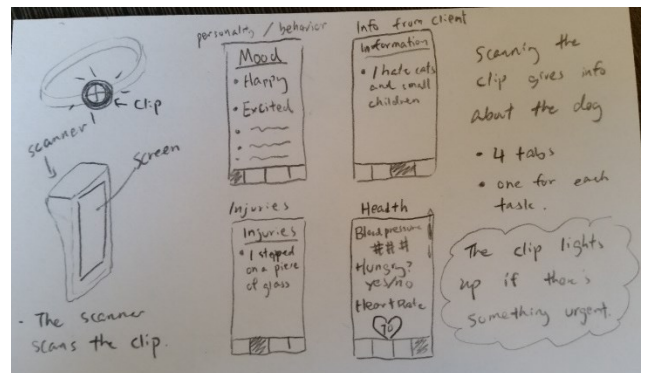 clip
scanner
screen
- The scanner
scans the clip.
personality / behavior
Mood
• Happy
• Excited
Info from client
Information
• I hate cats
and small
children
Injuries
Injuries
• I stepped
on a piece
of glass
Health
Blood pressure
###
Hungry?
yes/no
Heart Rate
70
Scanning the
clip gives info
about the dog
• 4 tabs
• one for each
task.
The clip lights
up if there's
something urgent.